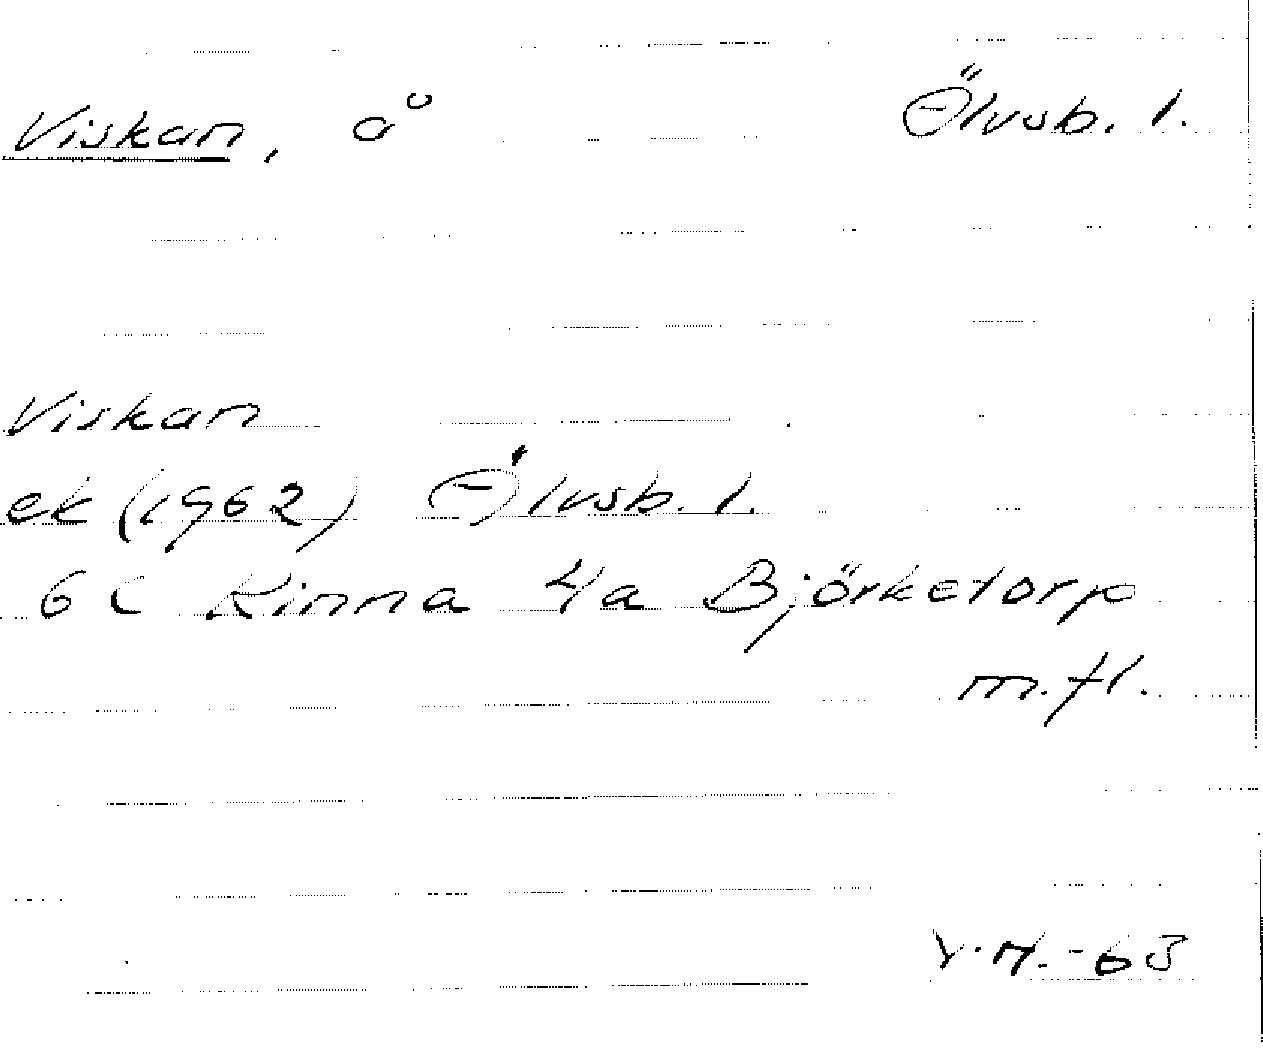 Viskan, å Älvsb. l.
Viskan
ek (1962) Älvsb. l.
6C Kinna 4a Björketorp
m.fl.
V.M. -63